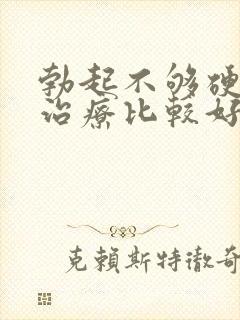 勃起不够硬
治療比較好
克賴斯特徹奇